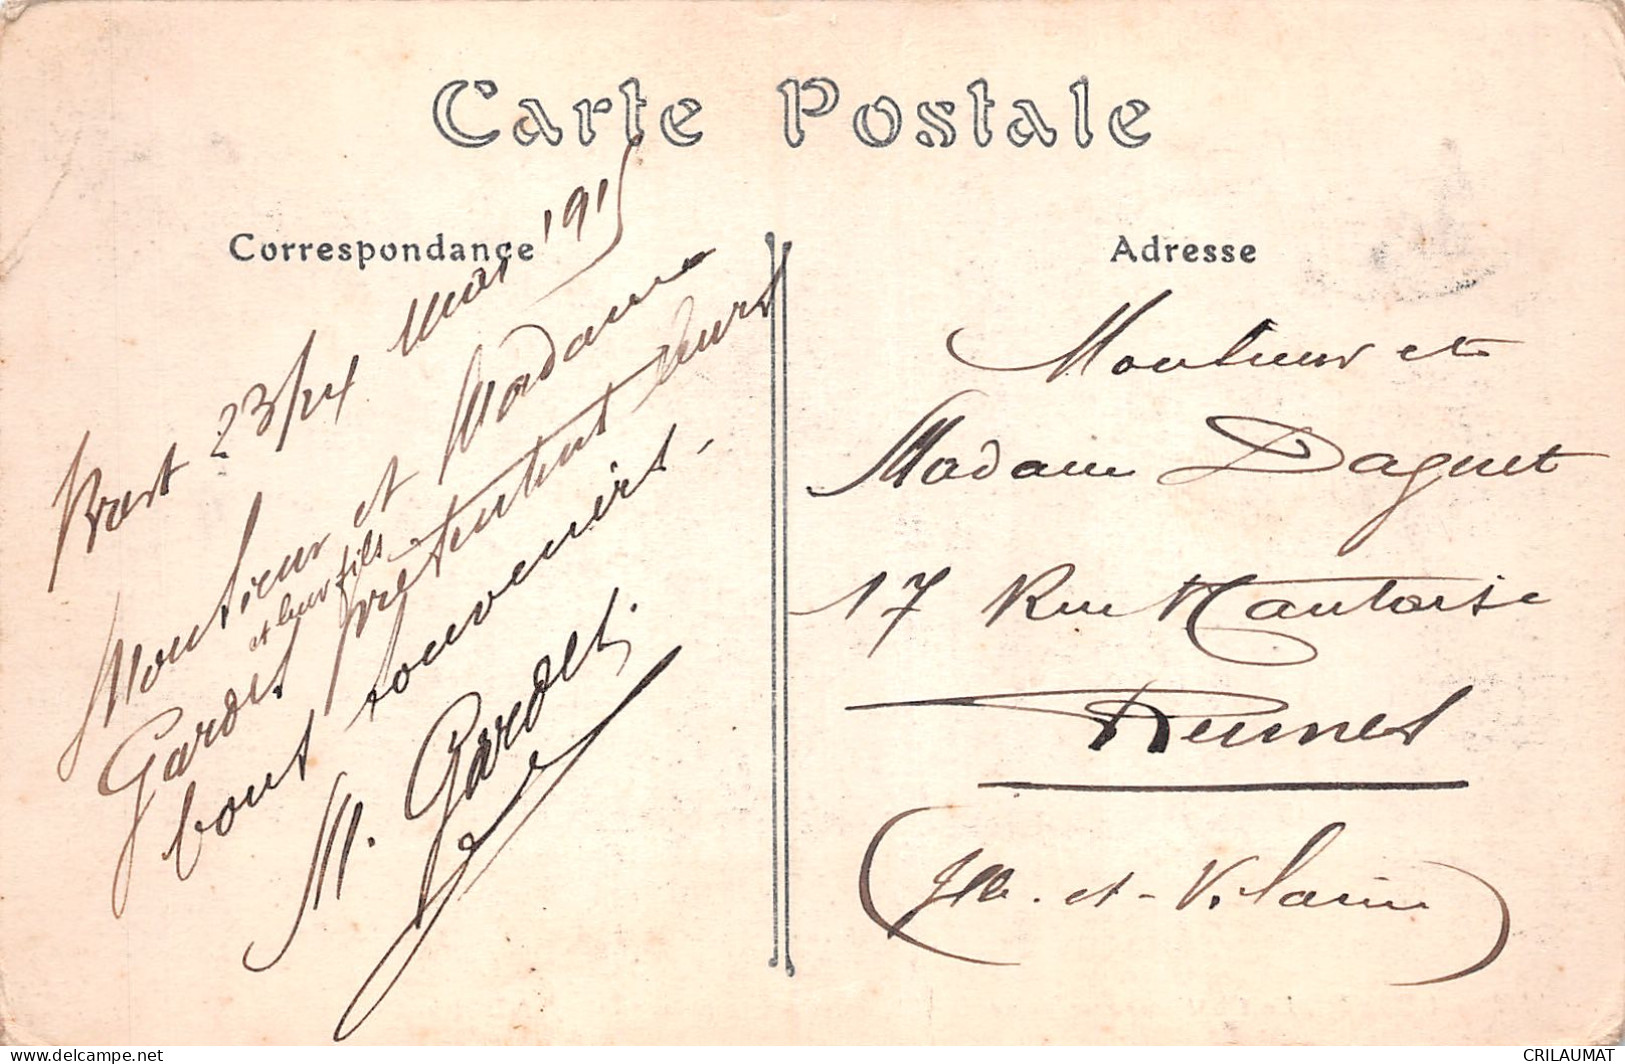 Carte Postale
Correspondance
Brest 23/24 Mars 1915
Monsieur et Madame
et leur fils
Gardet présentent leurs
bons souvenirs.
M. Gardet.
Adresse
Monsieur et
Madame Daguet
17 Rue Nantaise
Rennes
(Ille-et-Vilaine)
delcampe.net
CRILAUMAT